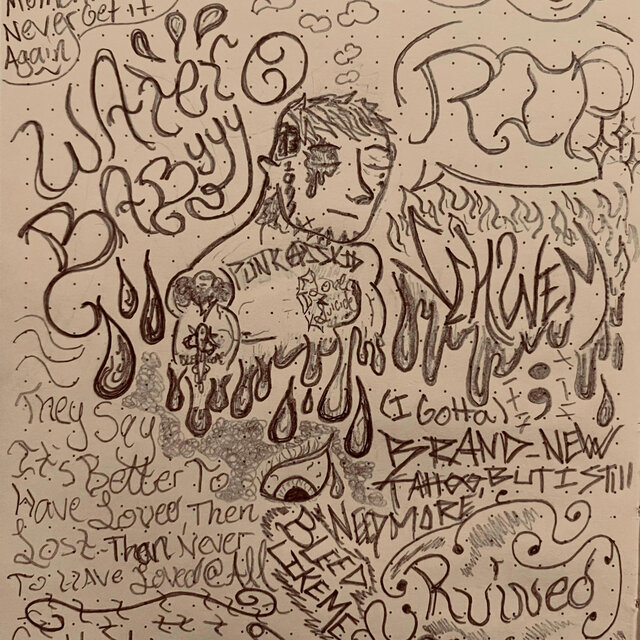 Never Get it
Again
WAter
BAByyy
RIP
AHWEN
PUNKASSKID
Love
(I GOTTA)
BRAND-NEW
TATTOO, BUT I STIll
NEED MORE
They Say
It's Better To
Have Loved, Then
Lost Than Never
To HAVE Loved @ All
BLEED
LIKE ME
Ruined